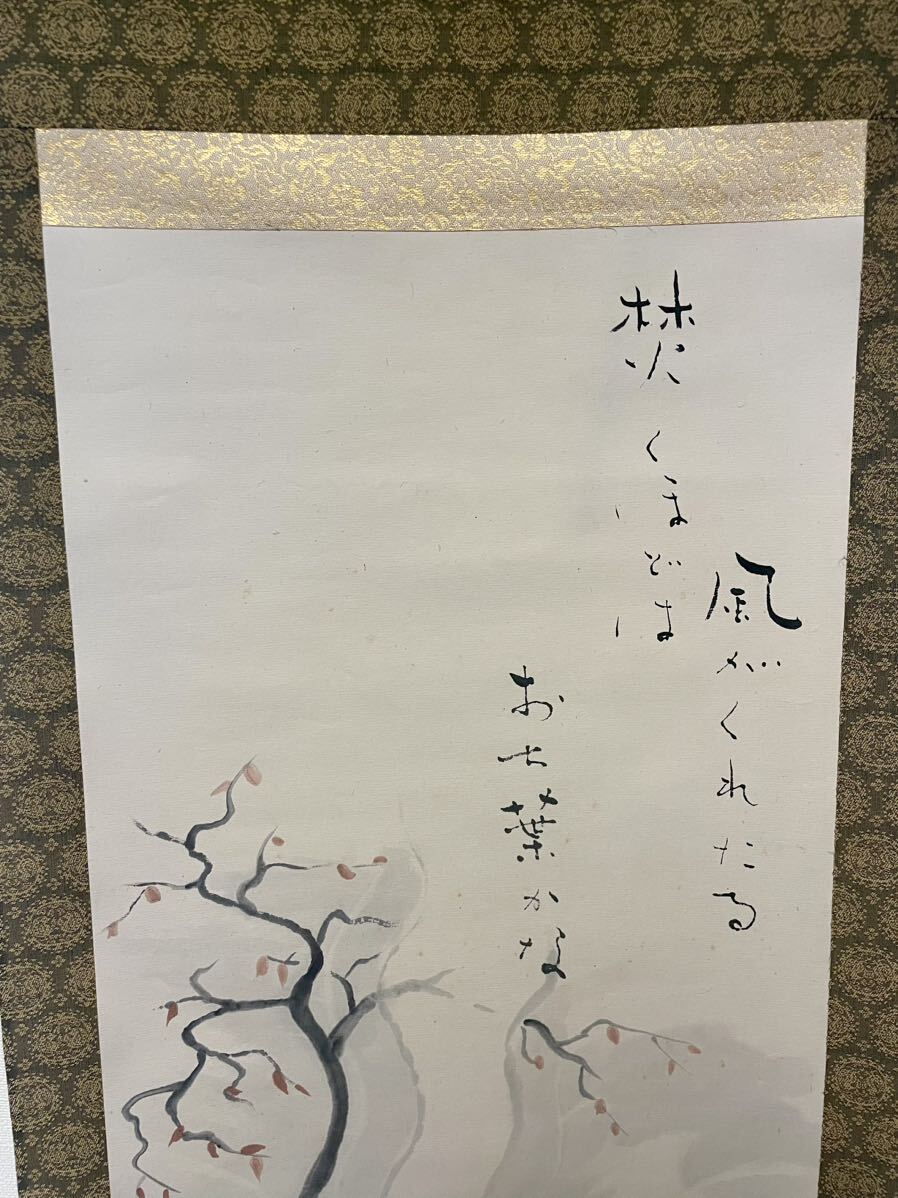 焚くほどは
風がくれたる
おち葉かな